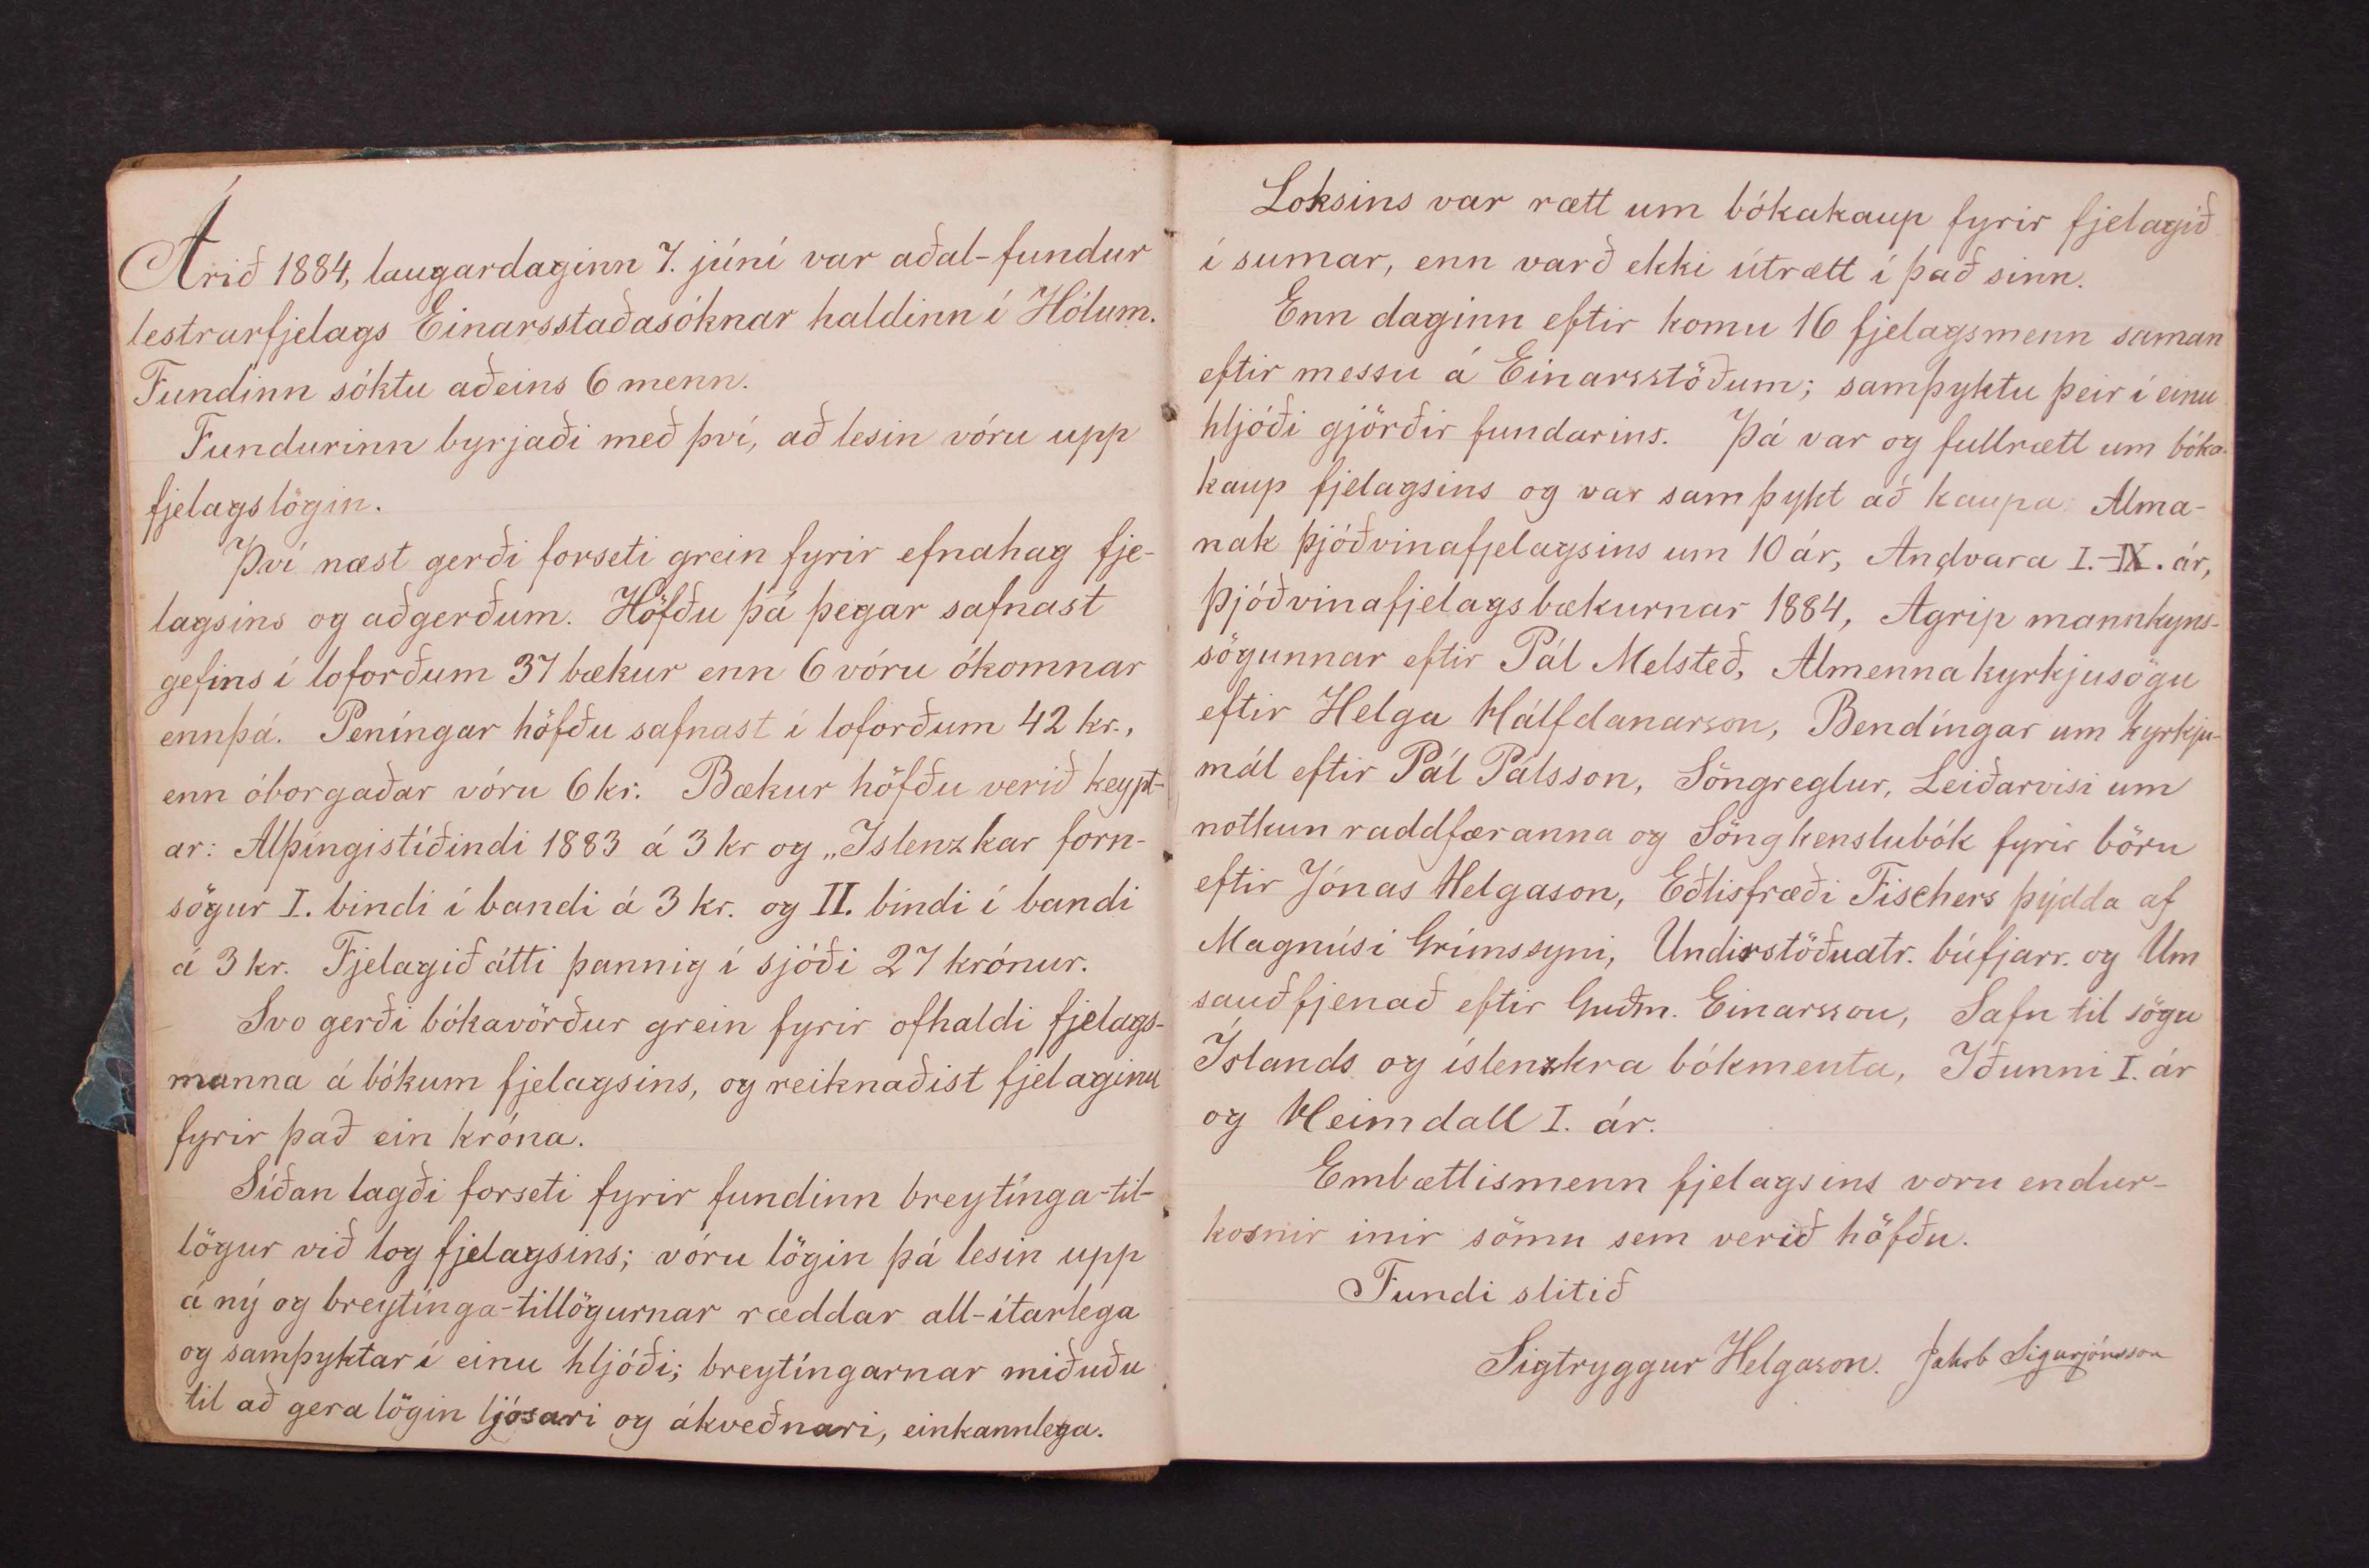 Árið 1884, laugardaginn 7. júní var aðal-fundur
lestrarfjelags Einarsstaðasóknar haldinn í Hólum.
Fundinn sóktu aðeins 6 menn.
Fundurinn byrjaði með því, að lesin vóru upp
fjelagslögin.
Því næst gerði forseti grein fyrir efnahag fje-
lagsins og aðgerðum. Höfðu þá þegar safnast
gefins í loforðum 37 bækur enn 6 vóru ókomnar
ennþá. Peníngar höfðu safnast í loforðum 42 kr.,
enn óborgaðar vóru 6 kr. Bækur höfðu verið keypt-
ar: Alþíngistíðindi 1883 á 3 kr og „Islenzkar forn-
sögur I. bindi í bandi á 3 kr. og II. bindi í bandi
á 3 kr. Fjelagið átti þannig í sjóði 27 krónur.
Svo gerði bókavörður grein fyrir ofhaldi fjelags-
manna á bókum fjelagsins, og reiknaðist fjelaginu
fyrir það ein króna.
Síðan lagði forseti fyrir fundinn breytínga-til-
lögur við log fjelagsins; vóru lögin þá lesin upp
á ný og breytínga-tillögurnar ræddar all-ítarlega
og samþyktar í einu hljóði; breytíngarnar miðuðu
til að gera lögin ljósari og ákveðnari, einkannlega.
Loksins var rætt um bókakaup fyrir fjelagið
í sumar, enn varð ekki útrætt í það sinn.
Enn daginn eftir komu 16 fjelagsmenn saman
eftir messu á Einarsstöðum; samþyktu þeir í einu
hljóði gjörðir fundarins. Þá var og fullrætt um bóka-
kaup fjelagsins og var samþykt að kaupa Alma-
nak þjóðvinafjelagsins um 10 ár, Andvara I.-IX. ár,
þjóðvinafjelagsbækurnar 1884, Agrip mannkyns-
sögunnar eftir Pál Melsteð, Almenna kyrkjusögu
eftir Helga Hálfdanarson, Bendíngar um kyrkju-
mál eftir Pál Pálsson, Söngreglur, Leiðarvisi um
notkun raddfæranna og Söngkenslubók fyrir börn
eftir Jónas Helgason, Eðlisfræði Fischers þýdda af
Magnúsi Grímssyni, Undirstöðuatr. búfjarr. og Um
sauðfjenað eftir Guðm. Einarsson, Safn til sögu
Íslands og íslenzkra bókmenta, Iðunni I. ár
og Heimdall I. ár.
Embættismenn fjelagsins voru endur-
kosnir inir sömu sem verið höfðu.
Fundi slitið
Sigtryggur Helgason. Jakob Sigurjónsson